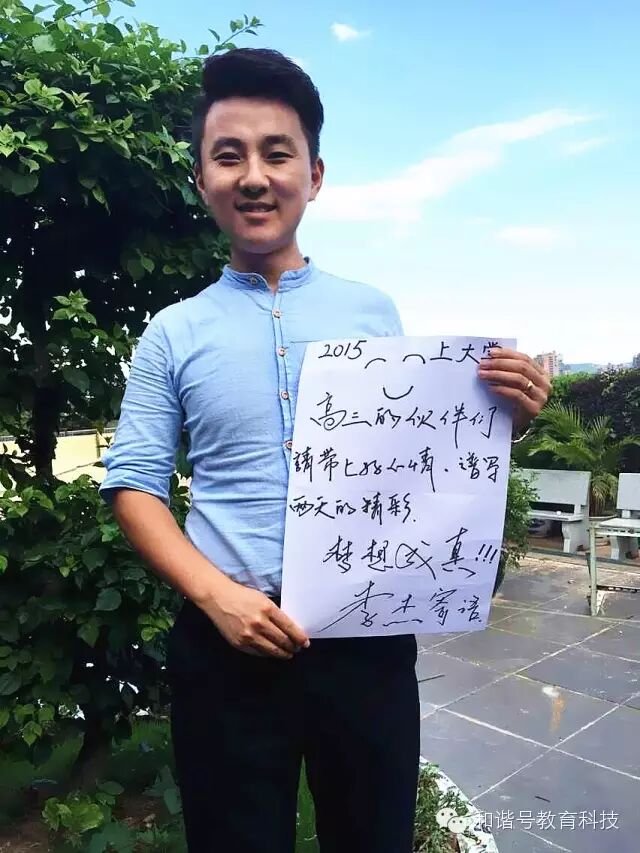 2015 上大学
高三的伙伴们
請带上好心情、谱写
两天的精彩.
梦想成真!!!
李杰寄语
和谐号教育科技